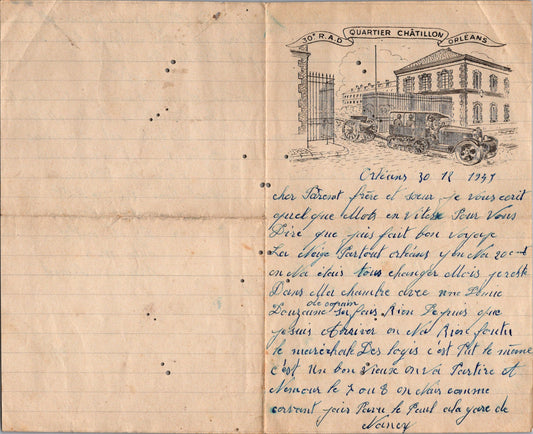 30e R.A.D QUARTIER CHÂTILLON ORLÉANS
Orléans 30 12 1941
cher Parent frère et sœur je vous ecrit
quel que Mots en vitese Pour Vous
Dire que jais fait bon voyage
La Neige Partout orléans y en Na 20 cent
on Na étaus tous changer Mois je reste
Dans Ma chambre avec une Bonne
Douzaine de copain Jen fais Rien Depuis que
je suis Arriver on Na Rien foutu
le marechale Des logis c'est Put le même
c'est un bon vieux on va Partire et
Nemour le 7 ou 8 on Nais comme
avant jais Paru le Paul a la gare de
Nancy